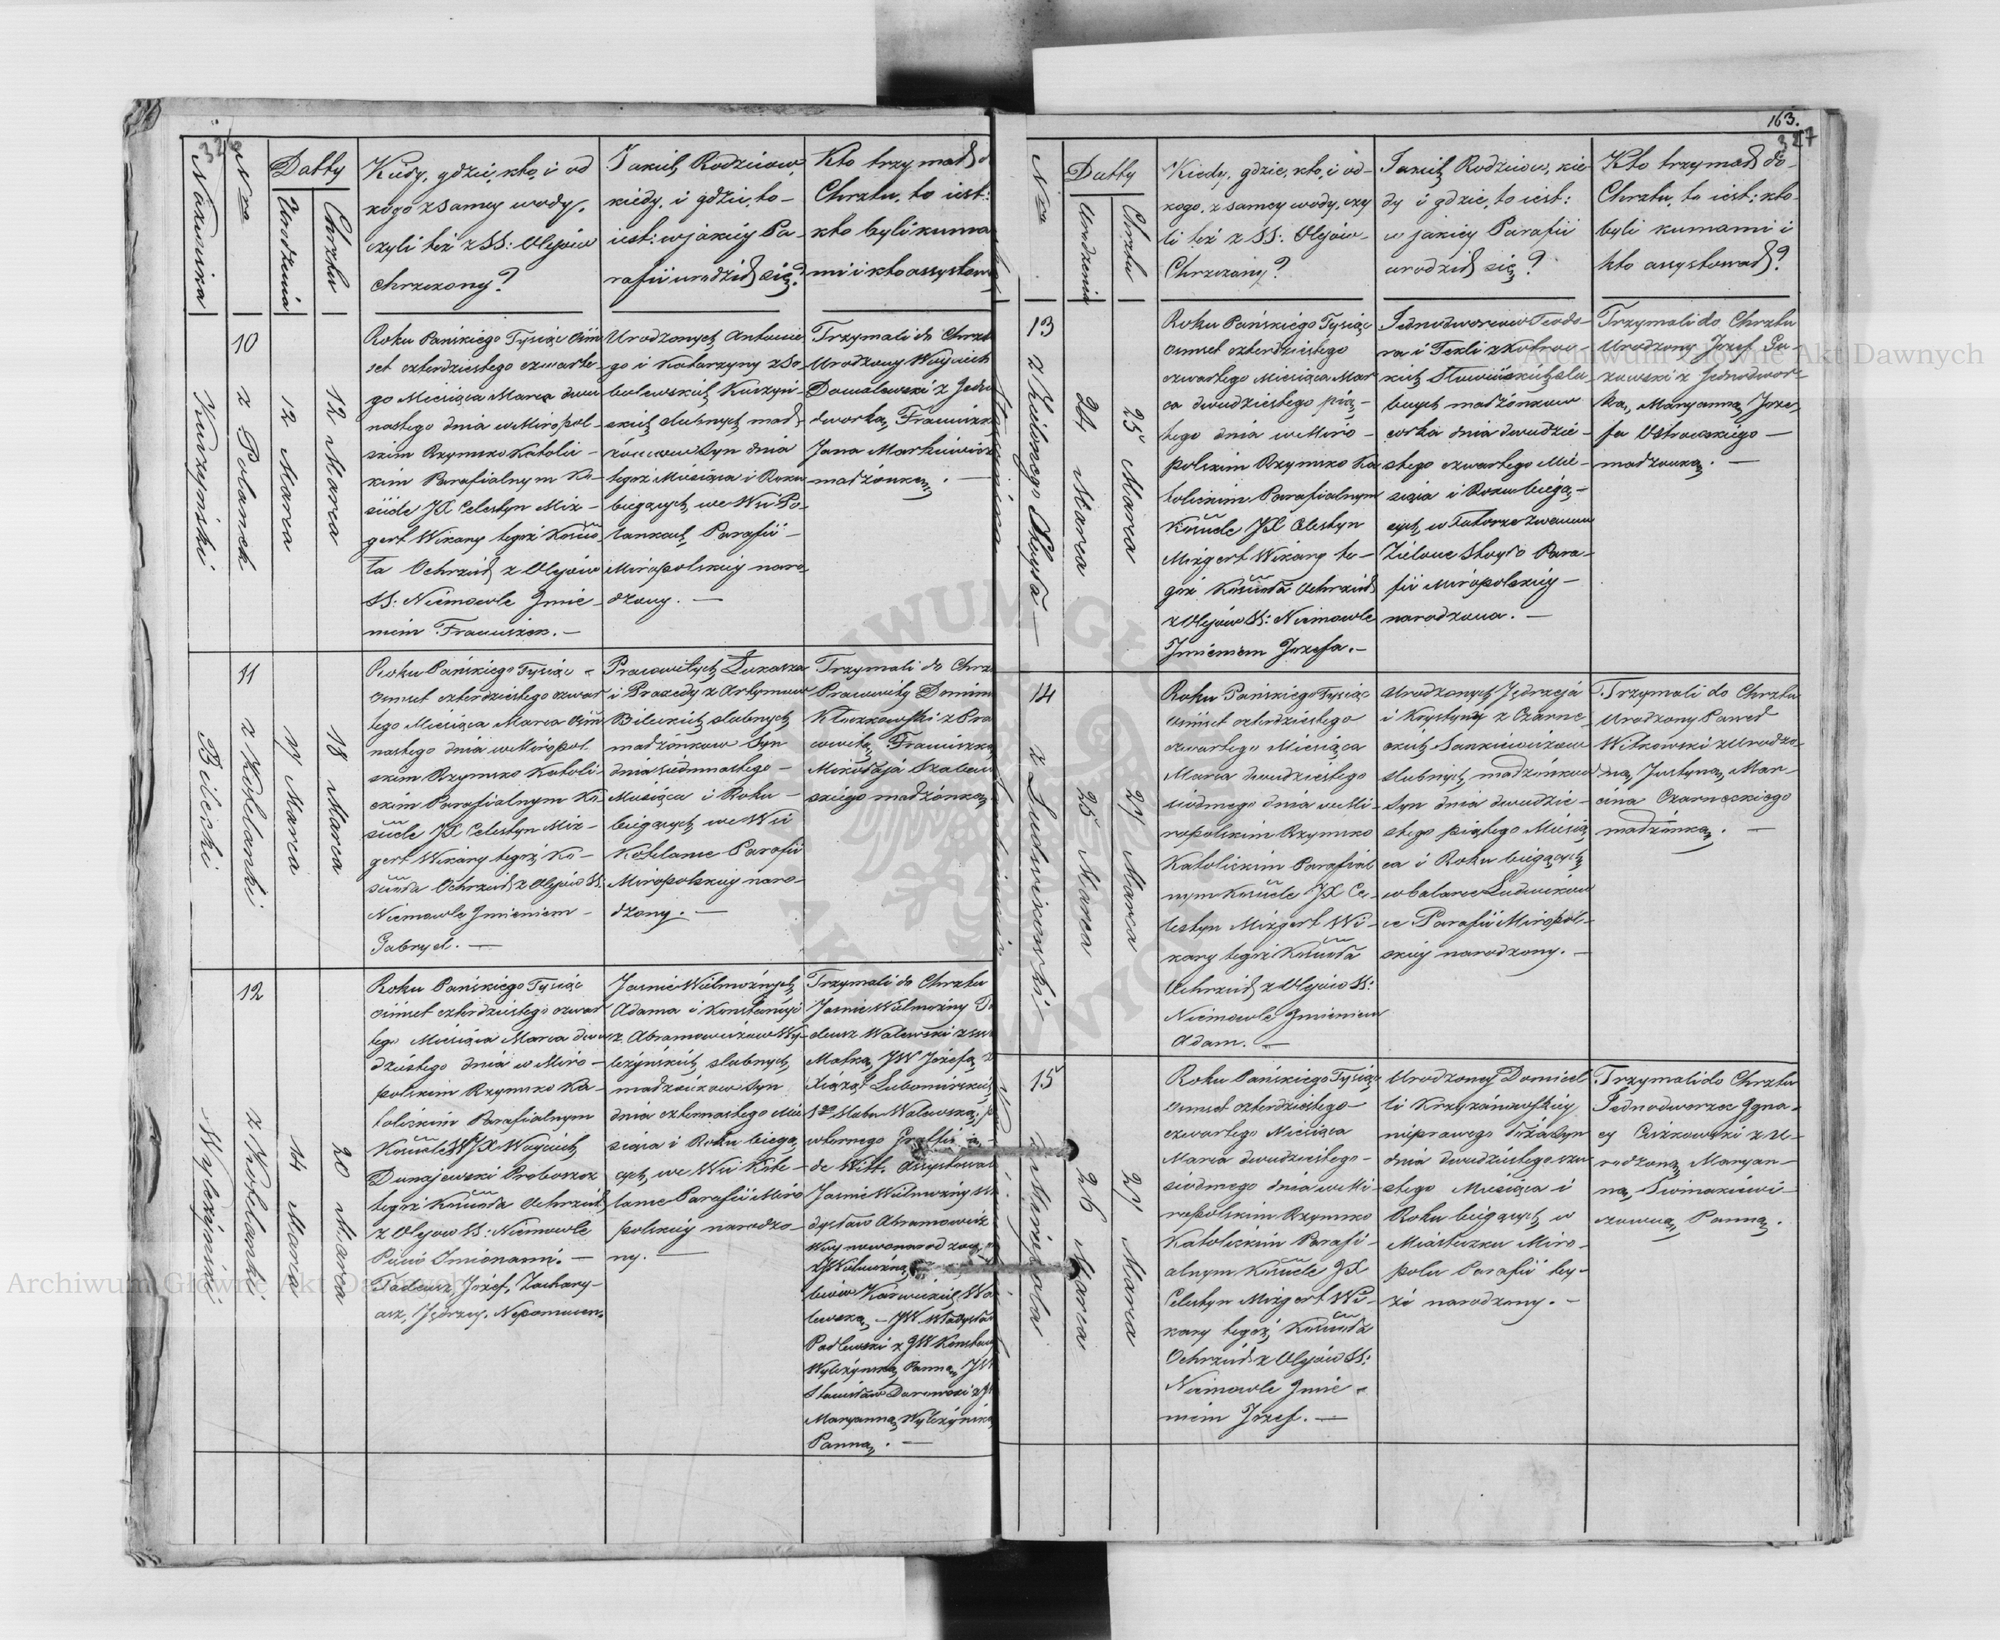 326
Nazwiska
Nra
Datty
Urodzenia
Chrztu
Kiedy, gdzie, kto, i od
kogo z samey wody,
czyli też z SS: Olejów
chrzczony?
Jakich Rodziców,
kiedy, i gdzie, to-
iest: w jakiey Pa-
rafii urodził się?
Kto trzymał d
Chrztu, to iest:
kto byli kuma
mi i kto assystow
Kuczyński
10
z Polanek
12 Marca
12 Marca
Roku Pańskiego Tysiąc Óm
set czterdziestego czwarte-
go Miesiąca Marca dwu
nastego dnia w Miropol-
skim Rzymsko Katolic-
kim Parafialnym Ko-
ściele JX Celestyn Miz-
gert Wikary tegoż Kościo
ła Ochrzcił z Olejów
SS: Niemowle Jmie-
niem Franciszek. —
Urodzonych Antonie
go i Katarzyny z So-
bolewskich Kuczyń-
skich slubnych mał
żonków Syn dnia
tegoż Miesiąca i Roku
bieżących we Wsi Po-
lankach Parafii -
Miropolskiey naro-
dzony. —
Trzymali do Chrzt
Urodzony Woyciech
Domalewski z Jedno
dworką, Franciszk
Jana Markiewicz
małżonką. —
Bilecki
11
z Kołdanki
17 Marca
18 Marca
Roku Pańskiego Tysiąc -
Ósmset czterdziestego czwar
tego Miesiąca Marca Óm
nastego dnia w Miropol-
skim Rzymsko Katoli-
ckim Parafialnym Ko-
ściele JX Celestyn Miz-
gert Wikary tegoż Ko-
ścioła Ochrzcił z Olejów SS:
Niemowle Jmieniem -
Gabryel. —
Pracowitych Łukasza
i Praxedy z Artymow
Bileckich slubnych
małżonków Syn
dnia siedmnastego -
Miesiąca i Roku -
bieżących we Wsi
Kołdance Parafii
Miropolskiey naro-
dzony. —
Trzymali do Chrz
Pracowity Domini
Kłuczkowski z Pra
cowitą, Franciszką
Mikołaja Szalew
skiego małżonką
Wyleżiński
12
z Kołdanki
14 Marca
20 Marca
Roku Pańskiego Tysiąc
ósmset czterdziestego czwar
tego Miesiąca Marca dwu
dziestego dnia w Miro-
polskim Rzymsko Ka-
tolickim Parafialnym
Kościele WJX Woyciech
Dunajewski Proboszcz
tegoż Kościoła Ochrzcił
z Olejów SS: Niemowle
Pięciu Imionami. —
Tadeusz, Józef, Zachary-
asz, Jędrzey, Nepomucen.
Jaśnie Wielmożnych
Adama i Konstancyi
z Abramowiczów Wy-
leżyńskich slubnych
małżonków Syn
dnia czternastego Mie
siąca i Roku bieżą
cych we Wsi Kołd-
lance Parafii Miro
polskiey narodzo-
ny. —
Trzymali do Chrztu
Jaśnie Wielmożny T
deusz Walewski z sw
Matką, JW Józefą z
Xiążąt Lubomirskich
1go slubu Walewską, p
wtornego Graffii
de Witt. Assystowali
Jaśnie Wielmożny Wł
dysław Abramowicz
lewską, - JW Władysła
Podlewski z JW Konstan
Wyleżyńską Panną, JW
Stanisław Darowski z J
Maryanną, Wyleżyńsk
Panną. —
163.
327
Nra
Datty
Urodzenia
Chrztu
Kiedy, gdzie, kto, i od-
kogo, z samey wody, czy
li też z SS: Olejów-
Chrzczony?
Jakich Rodziców, kie
dy i gdzie, to iest:
w jakiey Parafii
urodził się?
Kto trzymał do-
Chrztu, to iest: kto-
byli kumami i
kto assystował?
13
z Zielonego Słupa —
24 Marca
25 Marca
Roku Pańskiego Tysiąc
ósmset czterdziestego
czwartego Miesiąca Mar
ca dwudziestego pią-
tego dnia w Miro-
polskim Rzymsko Ka
tolickim Parafialnym
Kościele JX Celestyn
Mizgert Wikary te-
goż Kościoła Ochrzcił
z Olejów SS: Niemowle
Jmieniem Jozefa. -
Jednodworców Teodo-
ra i Tekli z Kotrow-
bnych małżonków
corka dnia dwudzie-
stego czwartego Mie-
siąca i Roku bieżą-
cych, w Futorze zwanem
Parafii Miropolskiey —
narodzona. —
Trzymali do Chrztu
Urodzony Jozef Pa-
z Jednodwor-
ką, Maryanną, Joze-
fa Ostrowskiego —
małżonką. —
14
z Ludwikówki
25 Marca
27 Marca
Roku Pańskiego Tysiąc
ósmset czterdziestego
czwartego Miesiąca
Marca dwudziestego
siódmego dnia w Mi-
ropolskim Rzymsko
Katolickim Parafial
nym Kościele JX Ce-
lestyn Mizgert Wi-
kary tegoż Kościoła
Ochrzcił z Olejów SS:
Niemowle Jmieniem
Adam. —
Urodzonych Jędrzeja
i Krystyny z Czarne
ckich Jankiewiczow
slubnych małżonków
Syn dnia dwudzie-
stego piątego Miesią
ca i Roku bieżących
Ludwików
ce Parafii Miropol-
skiey narodzony. —
Trzymali do Chrztu
Urodzony Paweł
Witkowski z Urodzo-
ną, Justyną, Mar-
cina Czarneckiego
małżonką. —
15
z Miropola
26 Marca
27 Marca
Roku Pańskiego Tysiąc
Ósmset czterdziestego-
czwartego Miesiąca
Marca dwudziestego-
siódmego dnia w Mi
ropolskim Rzymsko
Katolickim Parafi-
alnym Kościele JX
Celestyn Mizgert Wi-
kary tegoż Kościoła
Ochrzcił z Olejów SS:
Niemowle Jmie-
niem Jozef. —
Urodzoney Domicel
li Krzyżanowskiey
nieprawego łoża Syn
dnia dwudziestego szó
stego Miesiąca i
Roku bieżących w
Miasteczku Miro-
polu Parafii tey-
że narodzony. —
Trzymali do Chrztu
Jednodworzec Jgna-
cy z U-
rodzoną, Maryan-
ną,
Panną.
Archiwum Główne Akt Dawnych
Archiwum Główne Akt Dawnych